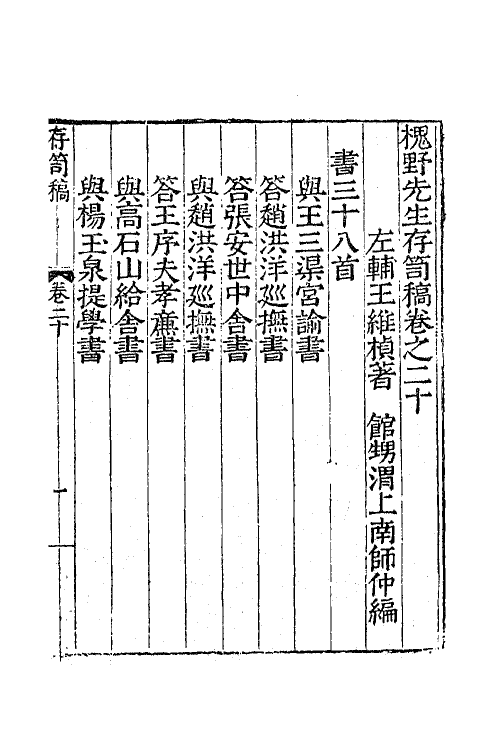 槐野先生存笥稿卷之二十
左輔王維楨著　館甥渭上南師仲編
書三十八首
與王三渠宮諭書
答趙洪洋廵撫書
答張安世中舍書
與趙洪洋廵撫書
答王序夫孝廉書
與高石山給舍書
與楊玉泉提學書
存笥稿　卷二十　一